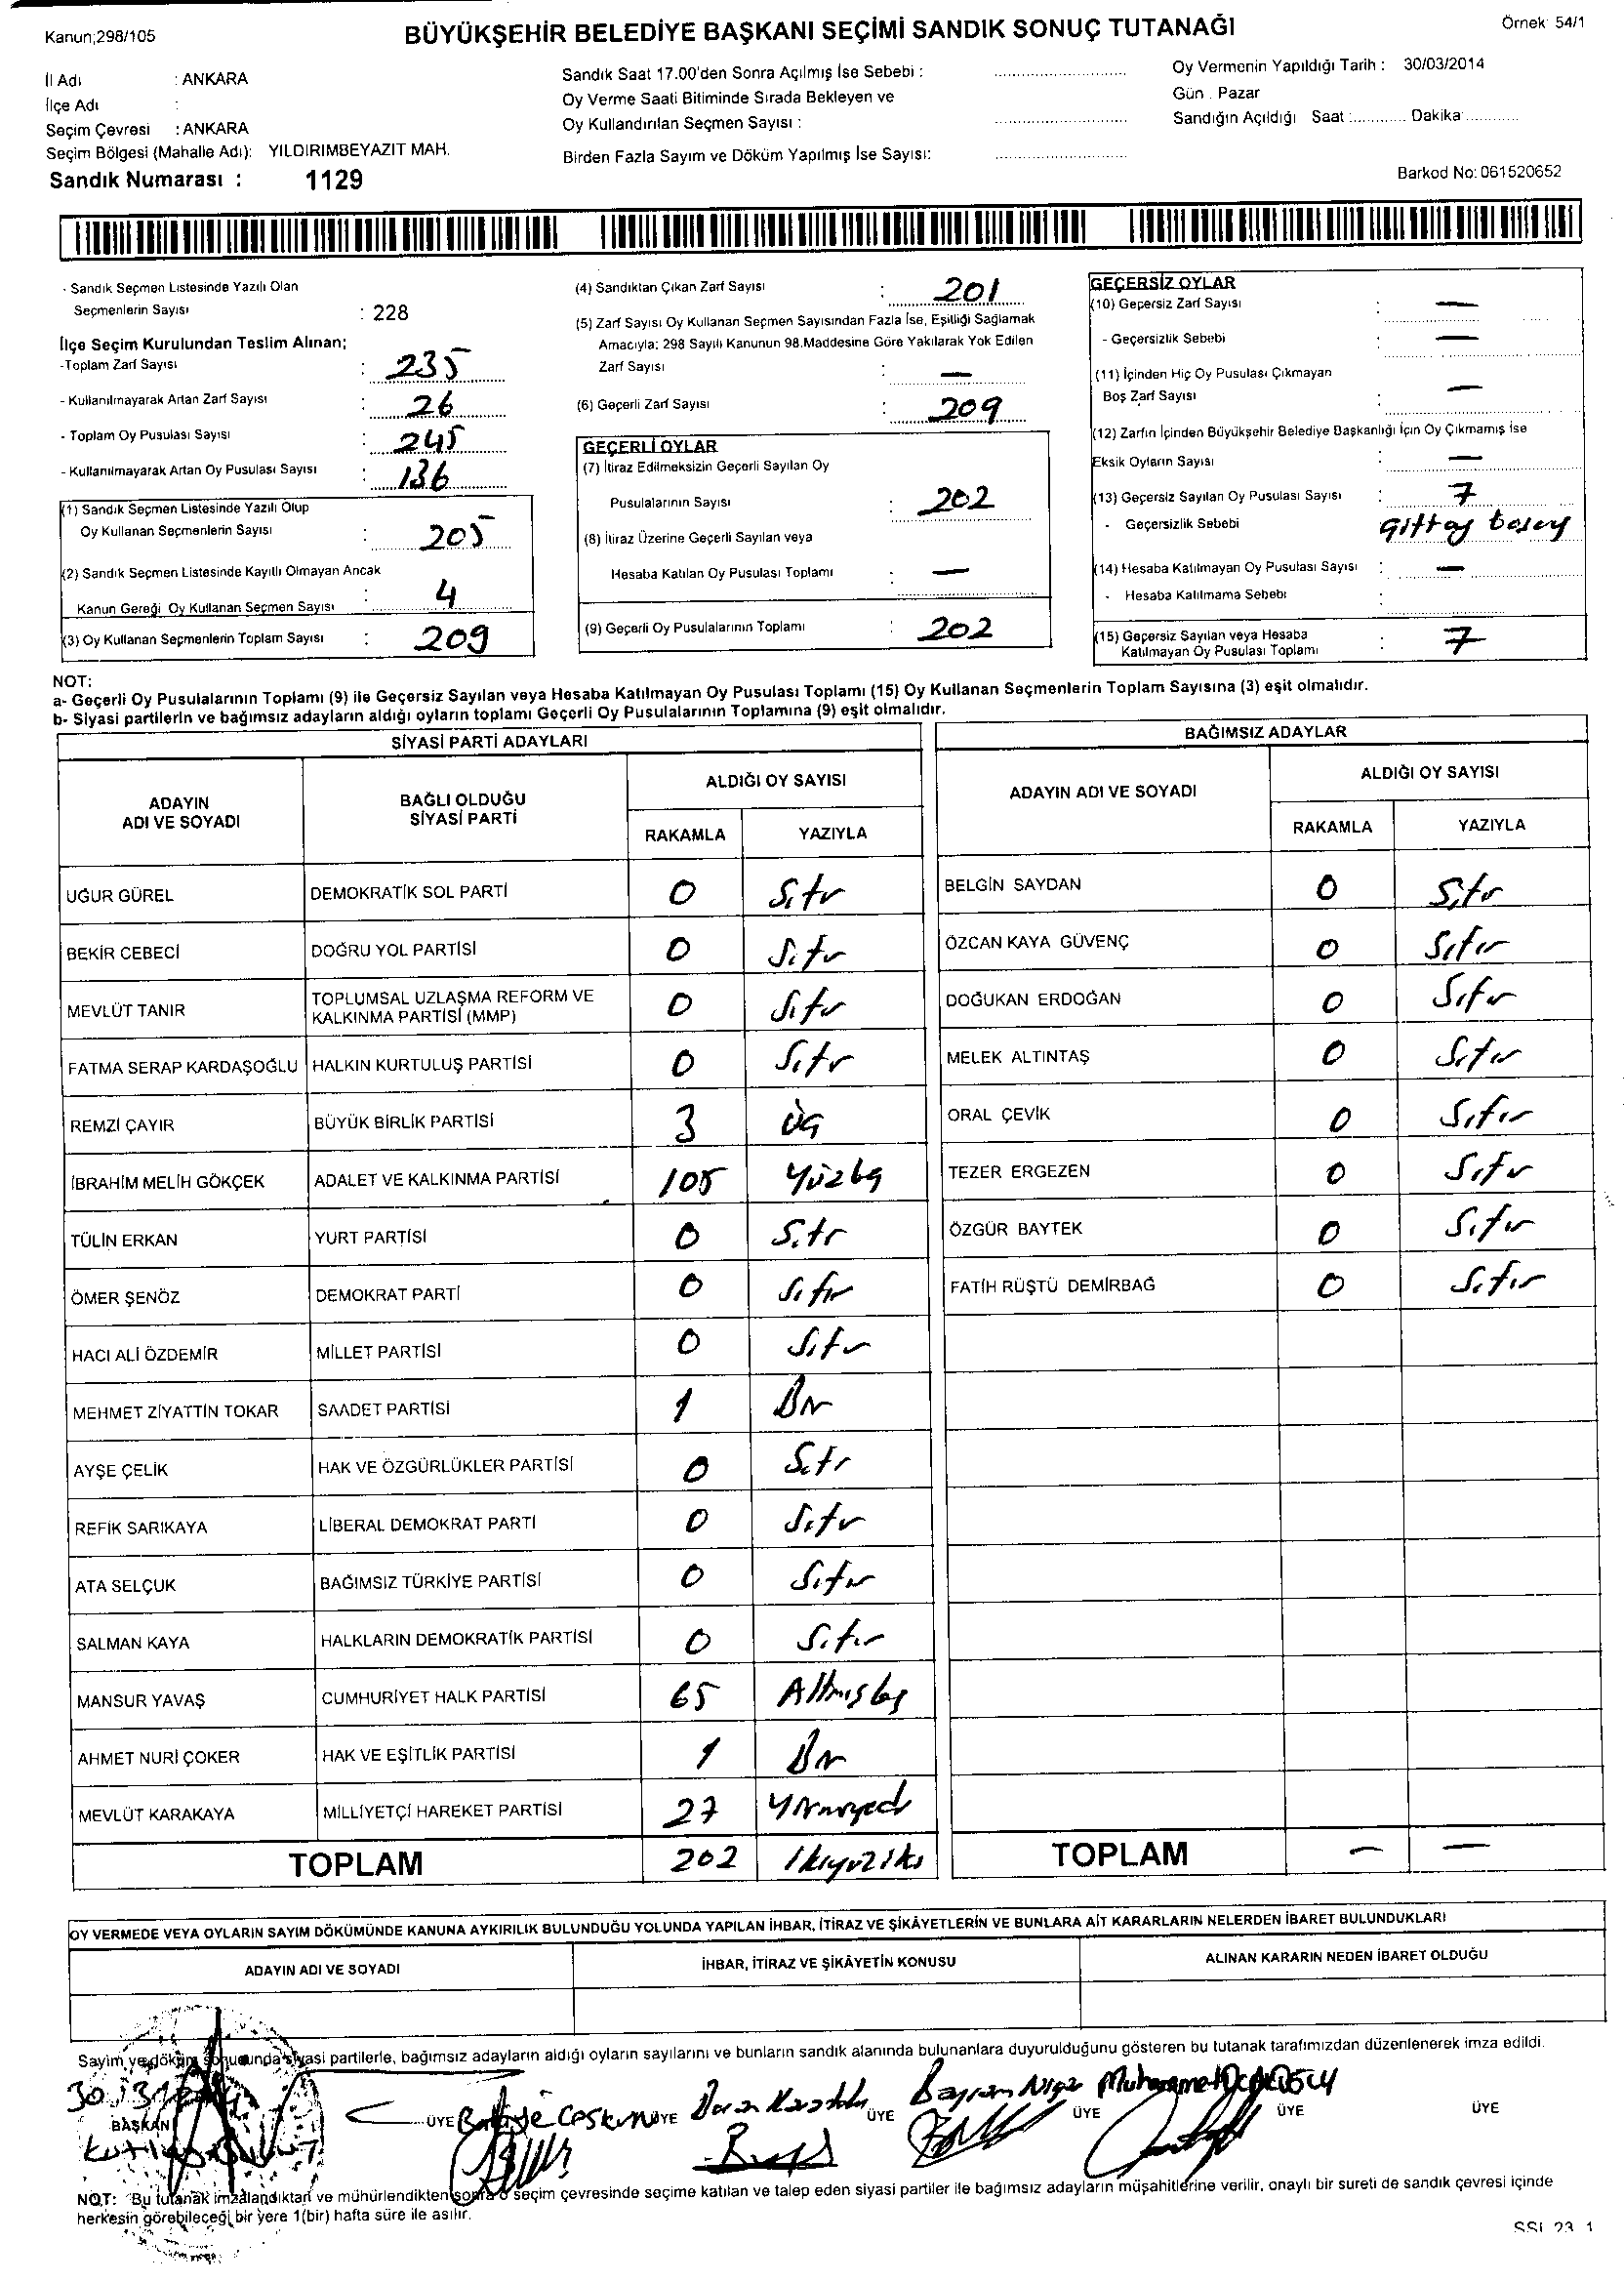 Kanun;298/105
BÜYÜKŞEHİR BELEDİYE BAŞKANI SEÇİMİ SANDIK SONUÇ TUTANAĞI
Örnek: 54/1
İl Adı : ANKARA
İlçe Adı :
Seçim Çevresi : ANKARA
Seçim Bölgesi (Mahalle Adı): YILDIRIMBEYAZIT MAH.
Sandık Numarası : 1129
Sandık Saat 17.00'den Sonra Açılmış İse Sebebi :
Oy Verme Saati Bitiminde Sırada Bekleyen ve
Oy Kullandırılan Seçmen Sayısı :
Birden Fazla Sayım ve Döküm Yapılmış İse Sayısı:
Oy Vermenin Yapıldığı Tarih : 30/03/2014
Gün : Pazar
Sandığın Açıldığı Saat :............ Dakika:............
Barkod No: 061520652
- Sandık Seçmen Listesinde Yazılı Olan
Seçmenlerin Sayısı : 228
İlçe Seçim Kurulundan Teslim Alınan;
-Toplam Zarf Sayısı : 235
- Kullanılmayarak Artan Zarf Sayısı : 26
- Toplam Oy Pusulası Sayısı : 245
- Kullanılmayarak Artan Oy Pusulası Sayısı : 136
(1) Sandık Seçmen Listesinde Yazılı Olup
Oy Kullanan Seçmenlerin Sayısı : 205
(2) Sandık Seçmen Listesinde Kayıtlı Olmayan Ancak
Kanun Gereği Oy Kullanan Seçmen Sayısı : 4
(3) Oy Kullanan Seçmenlerin Toplam Sayısı : 209
(4) Sandıktan Çıkan Zarf Sayısı : 201
(5) Zarf Sayısı Oy Kullanan Seçmen Sayısından Fazla İse, Eşitliği Sağlamak
Amacıyla; 298 Sayılı Kanunun 98.Maddesine Göre Yakılarak Yok Edilen
Zarf Sayısı : —
(6) Geçerli Zarf Sayısı : 209
GEÇERLİ OYLAR
(7) İtiraz Edilmeksizin Geçerli Sayılan Oy
Pusulalarının Sayısı : 202
(8) İtiraz Üzerine Geçerli Sayılan veya
Hesaba Katılan Oy Pusulası Toplamı : —
(9) Geçerli Oy Pusulalarının Toplamı : 202
GEÇERSİZ OYLAR
(10) Geçersiz Zarf Sayısı : —
- Geçersizlik Sebebi : —
(11) İçinden Hiç Oy Pusulası Çıkmayan
Boş Zarf Sayısı : —
(12) Zarfın İçinden Büyükşehir Belediye Başkanlığı İçin Oy Çıkmamış İse
Eksik Oyların Sayısı : —
(13) Geçersiz Sayılan Oy Pusulası Sayısı : 7
- Geçersizlik Sebebi :
(14) Hesaba Katılmayan Oy Pusulası Sayısı : —
- Hesaba Katılmama Sebebi :
(15) Geçersiz Sayılan veya Hesaba
Katılmayan Oy Pusulası Toplamı : 7
NOT:
a- Geçerli Oy Pusulalarının Toplamı (9) ile Geçersiz Sayılan veya Hesaba Katılmayan Oy Pusulası Toplamı (15) Oy Kullanan Seçmenlerin Toplam Sayısına (3) eşit olmalıdır.
b- Siyasi partilerin ve bağımsız adayların aldığı oyların toplamı Geçerli Oy Pusulalarının Toplamına (9) eşit olmalıdır.
SİYASİ PARTİ ADAYLARI
ADAYIN ADI VE SOYADI BAĞLI OLDUĞU SİYASİ PARTİ ALDIĞI OY SAYISI
RAKAMLA YAZIYLA
UĞUR GÜREL DEMOKRATİK SOL PARTİ 0 Sıfır
BEKİR CEBECİ DOĞRU YOL PARTİSİ 0 Sıfır
MEVLÜT TANIR TOPLUMSAL UZLAŞMA REFORM VE KALKINMA PARTİSİ (MMP) 0 Sıfır
FATMA SERAP KARDAŞOĞLU HALKIN KURTULUŞ PARTİSİ 0 Sıfır
REMZİ ÇAYIR BÜYÜK BİRLİK PARTİSİ 3 üç
İBRAHİM MELİH GÖKÇEK ADALET VE KALKINMA PARTİSİ 105 Yüzbş
TÜLİN ERKAN YURT PARTİSİ 0 Sıfır
ÖMER ŞENÖZ DEMOKRAT PARTİ 0 Sıfır
HACI ALİ ÖZDEMİR MİLLET PARTİSİ 0 Sıfır
MEHMET ZİYATTİN TOKAR SAADET PARTİSİ 1 Bir
AYŞE ÇELİK HAK VE ÖZGÜRLÜKLER PARTİSİ 0 Sıfır
REFİK SARIKAYA LİBERAL DEMOKRAT PARTİ 0 Sıfır
ATA SELÇUK BAĞIMSIZ TÜRKİYE PARTİSİ 0 Sıfır
SALMAN KAYA HALKLARIN DEMOKRATİK PARTİSİ 0 Sıfır
MANSUR YAVAŞ CUMHURİYET HALK PARTİSİ 65 Altmışbeş
AHMET NURİ ÇOKER HAK VE EŞİTLİK PARTİSİ 1 Bir
MEVLÜT KARAKAYA MİLLİYETÇİ HAREKET PARTİSİ 27 Yirmiyedi
TOPLAM 202 İkiyüziki
BAĞIMSIZ ADAYLAR
ADAYIN ADI VE SOYADI ALDIĞI OY SAYISI
RAKAMLA YAZIYLA
BELGİN SAYDAN 0 Sıfır
ÖZCAN KAYA GÜVENÇ 0 Sıfır
DOĞUKAN ERDOĞAN 0 Sıfır
MELEK ALTINTAŞ 0 Sıfır
ORAL ÇEVİK 0 Sıfır
TEZER ERGEZEN 0 Sıfır
ÖZGÜR BAYTEK 0 Sıfır
FATİH RÜŞTÜ DEMİRBAĞ 0 Sıfır
TOPLAM — —
OY VERMEDE VEYA OYLARIN SAYIM DÖKÜMÜNDE KANUNA AYKIRILIK BULUNDUĞU YOLUNDA YAPILAN İHBAR, İTİRAZ VE ŞİKÂYETLERİN VE BUNLARA AİT KARARLARIN NELERDEN İBARET BULUNDUKLARI
ADAYIN ADI VE SOYADI İHBAR, İTİRAZ VE ŞİKÂYETİN KONUSU ALINAN KARARIN NEDEN İBARET OLDUĞU
Sayım ve döküm sonucunda siyasi partilerle, bağımsız adayların aldığı oyların sayılarını ve bunların sandık alanında bulunanlara duyurulduğunu gösteren bu tutanak tarafımızdan düzenlenerek imza edildi.
BAŞKAN ÜYE ÜYE ÜYE ÜYE ÜYE ÜYE
NOT: Bu tutanak imzalandıktan ve mühürlendikten sonra o seçim çevresinde seçime katılan ve talep eden siyasi partiler ile bağımsız adayların müşahitlerine verilir, onaylı bir sureti de sandık çevresi içinde
herkesin görebileceği bir yere 1(bir) hafta süre ile asılır.